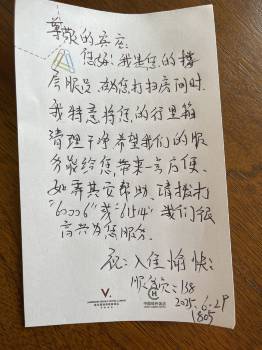 尊敬的宾客:
您好!我是您的楼
层服务员,在为您打扫房间时
我特意将您的行李箱
清理干净,希望我们的服
务能给您带来一丝方便
如需其它帮助,请拨打
"60006"或"6154"我们很
高兴为您服务.
祝:入住愉快:
服务员:138
2025.6.29
1805
V
H